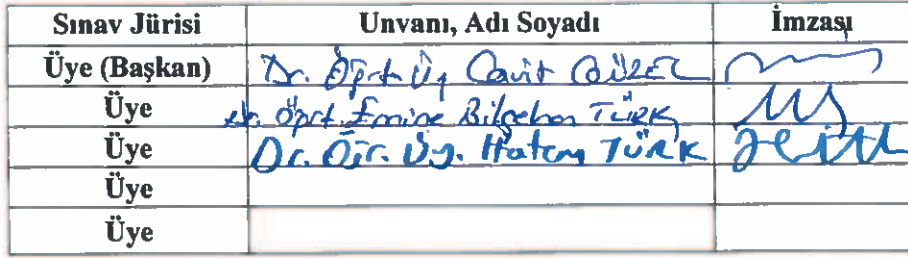 Sınav Jürisi Unvanı, Adı Soyadı İmzası
Üye (Başkan) Dr. Öğrt. Üy Cavit GÜZEL
Üye Dr. Öğrt. Emine Bilgehan TÜRK
Üye Dr. Öğr. Üy. Hatem TÜRK
Üye
Üye